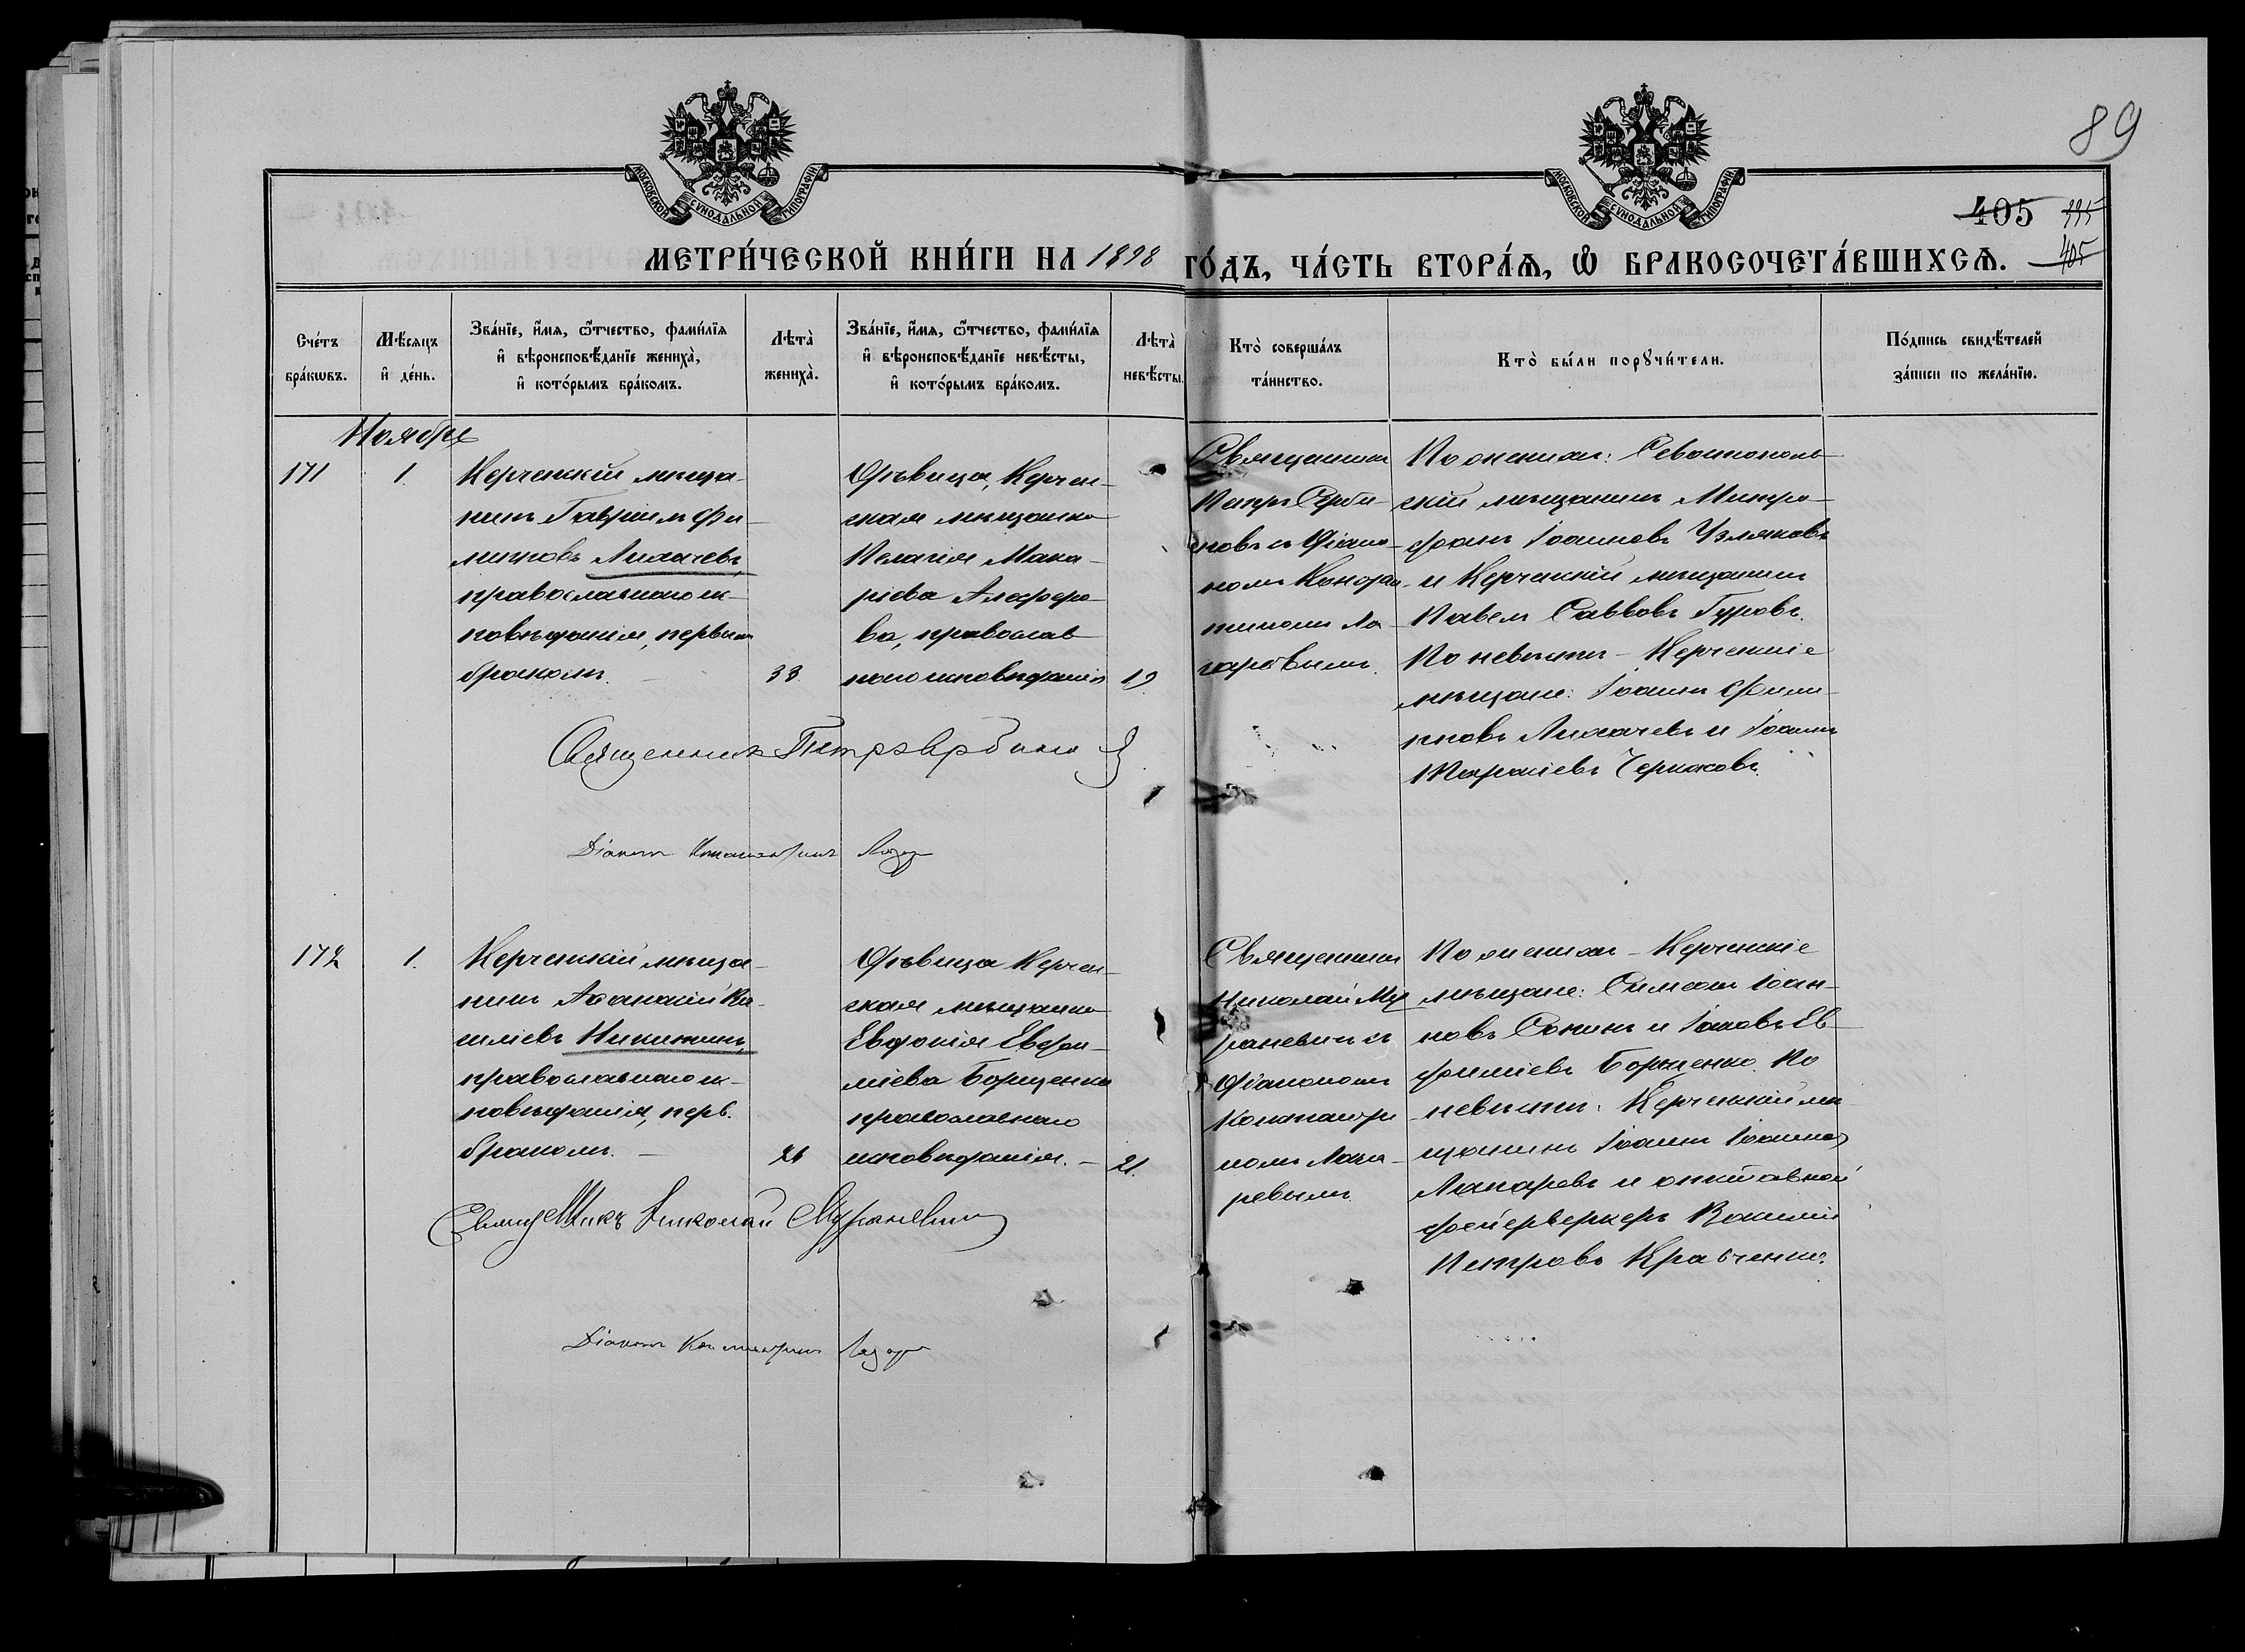 89
МОСКОВСКОЙ СѴНОДАЛЬНОЙ ТИПОГРАФІИ
МОСКОВСКОЙ СѴНОДАЛЬНОЙ ТИПОГРАФІИ
405 395
405
МЕТРИ́ЧЕСКОЙ КНИ́ГИ НА 1898 ГО́ДЪ, ЧА́СТЬ ВТОРА́Ѧ, Ѡ҆ БРАКОСОЧЕТА́ВШИХСѦ.
Сче́тъ
бра́кωвъ.
Мѣ́сяцъ
и҆ де́нь.
Зва́нїе, и҆́мя, ѻ҆́тчество, фами́лїя
и҆ вѣроисповѣ́данїе жениха̀,
и҆ кото́рымъ бра́комъ.
Лѣта̀
жениха̀.
Зва́нїе, и҆́мя, ѻ҆́тчество, фами́лїя
и҆ вѣроисповѣ́данїе невѣ́сты,
и҆ кото́рымъ бра́комъ.
Лѣта̀
невѣ́сты.
Кто̀ соверша́лъ
та́инство.
Кто̀ бы́ли порꙋчи́тели.
По́дпись свидѣ́телей
за́писи по жела́нїю.
Ноябрь
171
1.
Керченскій мѣща-
нинъ Гавріилъ Фи-
липповъ Лихачевъ,
православнаго ис-
повѣданія, первымъ
бракомъ.
33.
Дѣвица, Керчен-
ская мѣщанка
Пелагія Мака-
ріева Алефиро-
ва, православ
наго исповѣданія
19
Священникъ
Петръ Серби-
новъ съ Діако-
номъ Констан-
тиномъ Ла-
заревымъ.
По женихѣ: Севастополь-
скій мѣщанинъ Митро-
фанъ Іоанновъ Узляковъ
и Керченскій мѣщанинъ
Павелъ Савововъ Гуровъ.
По невѣстѣ - Керченскіе
мѣщане: Іоаннъ Филип-
повъ Лихачевъ и Іоаннъ
Чермаковъ.
Священникъ Петръ Сербиновъ
Діаконъ Константинъ Лазар
172
1.
Керченскій мѣща-
нинъ Аѳанасій Ва-
силіевъ Никитинъ,
православнаго ис-
повѣданія, перв.
бракомъ.
26
Дѣвица Керчен-
ская мѣщанка
Евдокія Евфи-
міева Борщенко
православнаго
исповѣданія. -
21.
Священникъ
Николай Му
раневичъ съ
Діакономъ
Константи
номъ Лаза-
ревымъ
По женихѣ - Керченскіе
мѣщане: Симеонъ Іоан-
новъ Сонинъ и Іаковъ Ев-
фиміевъ Борщенко. По
невѣстѣ: Керченскій мѣ-
щанинъ Іоаннъ Іоанновъ
Макаровъ и отставной
фейерверкеръ Василій
Петровъ Кравченко.
Священникъ Николай Мураневичъ
Діаконъ Константинъ Лазар